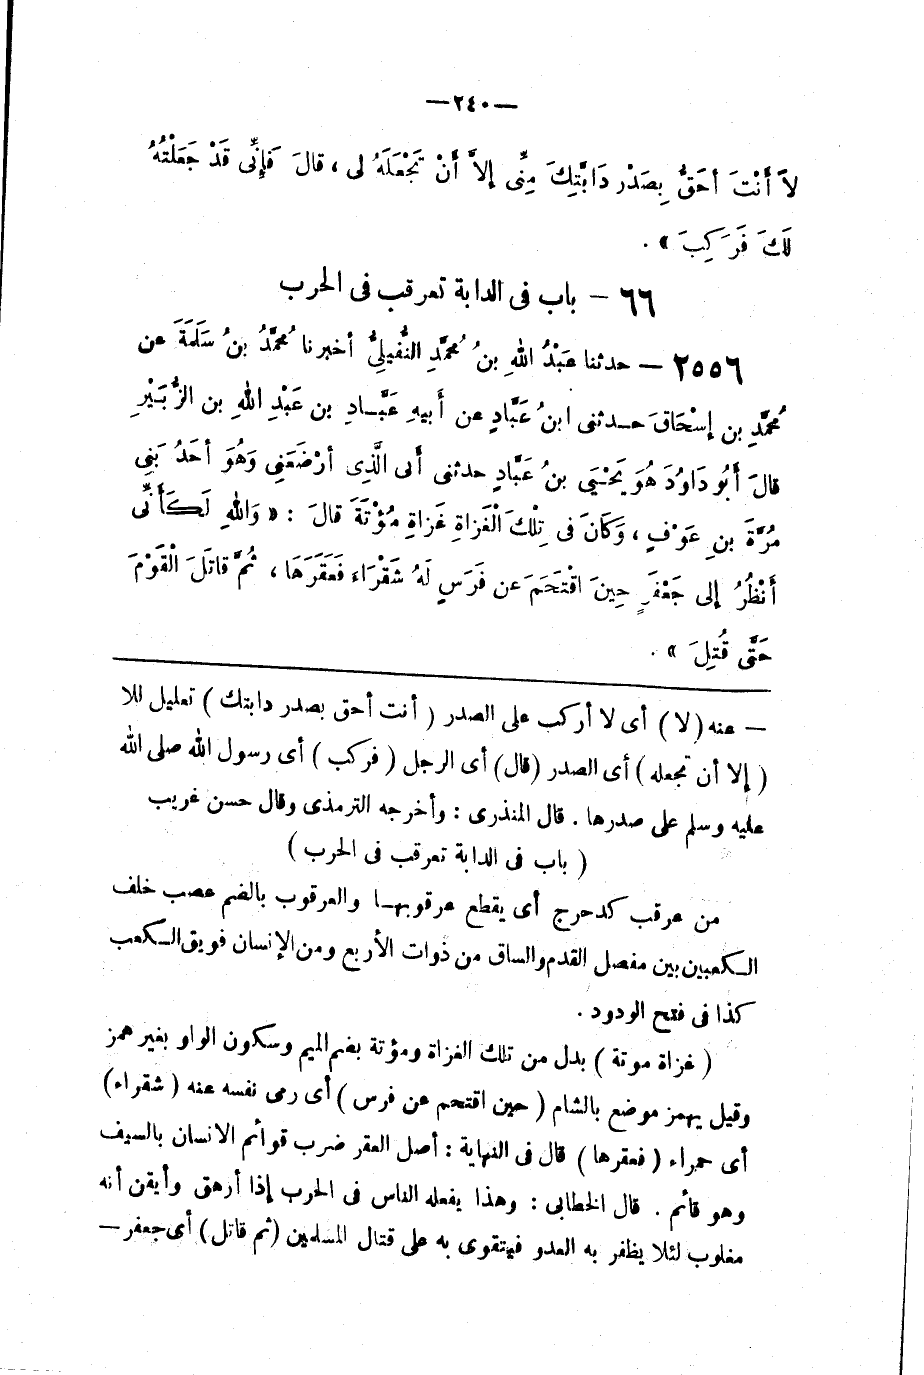 —٢٤٠—
لاَ أَنْتَ أَحَقُّ بِصَدْرِ دَابَّتِكَ مِنِّى إلاَّ أَنْ تَجْعَلَهُ لى ، قالَ فَإِنِّى قَدْ جَعَلْتُهُ
لَكَ فَرَكِبَ » .
٦٦ – باب فى الدابة تعرقب فى الحرب
٢٥٥٦ – حدثنا عَبْدُ اللهِ بنُ مُحمَّدٍ النُّفَيلِىُّ أخبرنا مُحمَّدُ بنُ سَلَمَةَ عن
مُحمَّدِ بن إسْحَاقَ حـدثنى ابنُ عَبَّادٍ عن أَبيهِ عَبَّـادِ بن عَبْدِ اللهِ بن الزُّبَيْرِ
قالَ أَبُو دَاوُدَ هُوَ يَحْيَى بنُ عَبَّادٍ حدثنى أَبى الَّذِى أَرْضَعَنِى وَهُوَ أحَدُ بَنِى
مُرَّةَ بنِ عَوْفٍ ، وَكَانَ فى تِلْكَ الْغَزاةِ غَزاةِ مُؤْتَةَ قالَ : « وَاللهِ لَـكَأَنِّى
أَنْظُرُ إلى جَعْفَرٍ حِينَ اقْتَحَمَ عن فَرَسٍ لَهُ شَقْرَاءَ فَعَقَرَهَا ، ثُمَّ قاتَلَ الْقَوْمَ
حَتَّى قُتِلَ » .
— عنه ( لا ) أى لا أركب على الصدر ( أنت أحق بصدر دابتك ) تعليل للا
( إلا أن تجعله ) أى الصدر ( قال ) أى الرجل ( فركب ) أى رسول الله صلى الله
عليه وسلم على صدرها . قال المنذرى : وأخرجه الترمذى وقال حسن غريب
( باب فى الدابة تعرقب فى الحرب )
من عرقب كدحرج أى يقطع عرقوبهـا والعرقوب بالضم عصب خلف
الـكعبين بين مفصل القدم والساق من ذوات الأربع ومن الإنسان فويق الـكعب
كذا فى فتح الودود .
( غزاة موتة ) بدل من تلك الغزاة ومؤتة بضم الميم وسكون الواو بغير همز
وقيل بهمز موضع بالشام ( حين اقتحم عن فرس ) أى رمى نفسه عنه ( شقراء )
أى حمراء ( فعقرها ) قال فى النهاية : أصل العقر ضرب قوائم الانسان بالسيف
وهو قائم . قال الخطابى : وهذا يفعله الناس فى الحرب إذا أرهق وأيقن أنه
مغلوب لئلا يظفر به العدو فيتقوى به على قتال المسلمين ( ثم قاتل ) أى جعفر —